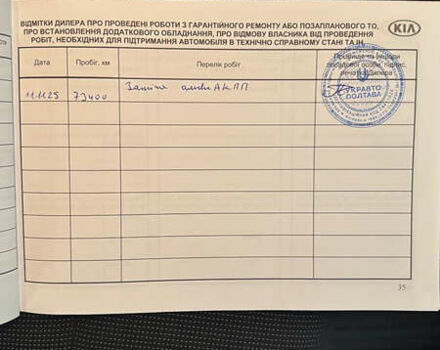 ВІДМІТКИ ДИЛЕРА ПРО ПРОВЕДЕНІ РОБОТИ З ГАРАНТІЙНОГО РЕМОНТУ АБО ПОЗАПЛАНОВОГО ТО,
ПРО ВСТАНОВЛЕННЯ ДОДАТКОВОГО ОБЛАДНАННЯ, ПРО ВІДМОВУ ВЛАСНИКА ВІД ПРОВЕДЕННЯ
РОБІТ, НЕОБХІДНИХ ДЛЯ ПІДТРИМАННЯ АВТОМОБІЛЯ В ТЕХНІЧНО СПРАВНОМУ СТАНІ ТА ІН.
KIA
Дата Пробіг, км Перелік робіт Прізвище та ініціали
посадової особи, підпис,
печатка Дилера
11.11.25 73400 Заміна оливи АКПП
УКРАВТО
ПОЛТАВА
35